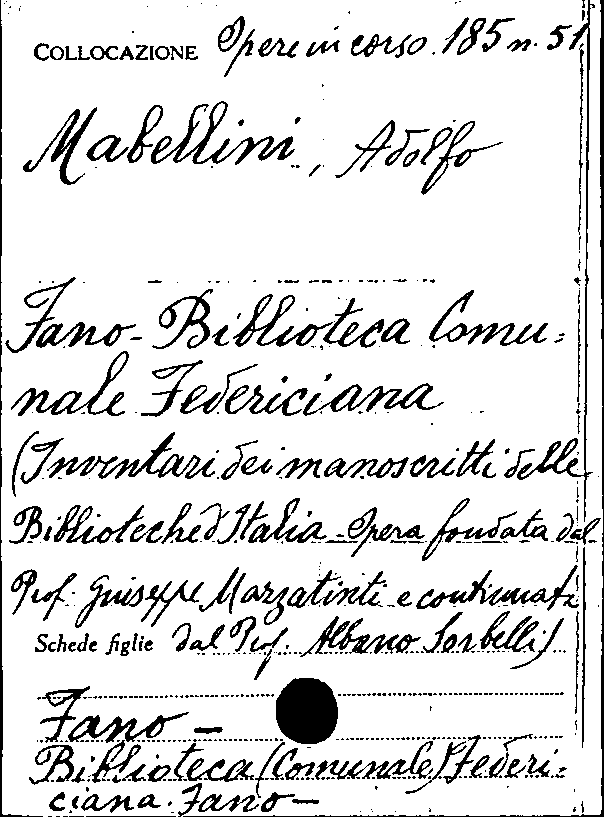 COLLOCAZIONE Opere in corso 185 n. 51
Mabellini, Adolfo
Fano - Biblioteca Comu=
nale Federiciana
(Inventari dei manoscritti delle
Biblioteche d'Italia - Opera fondata dal
Prof. Giuseppe Mazzatinti e continuata
Schede figlie dal Prof. Albano Sorbelli)
Fano -
Biblioteca (Comunale) Federi=
ciana. Fano -